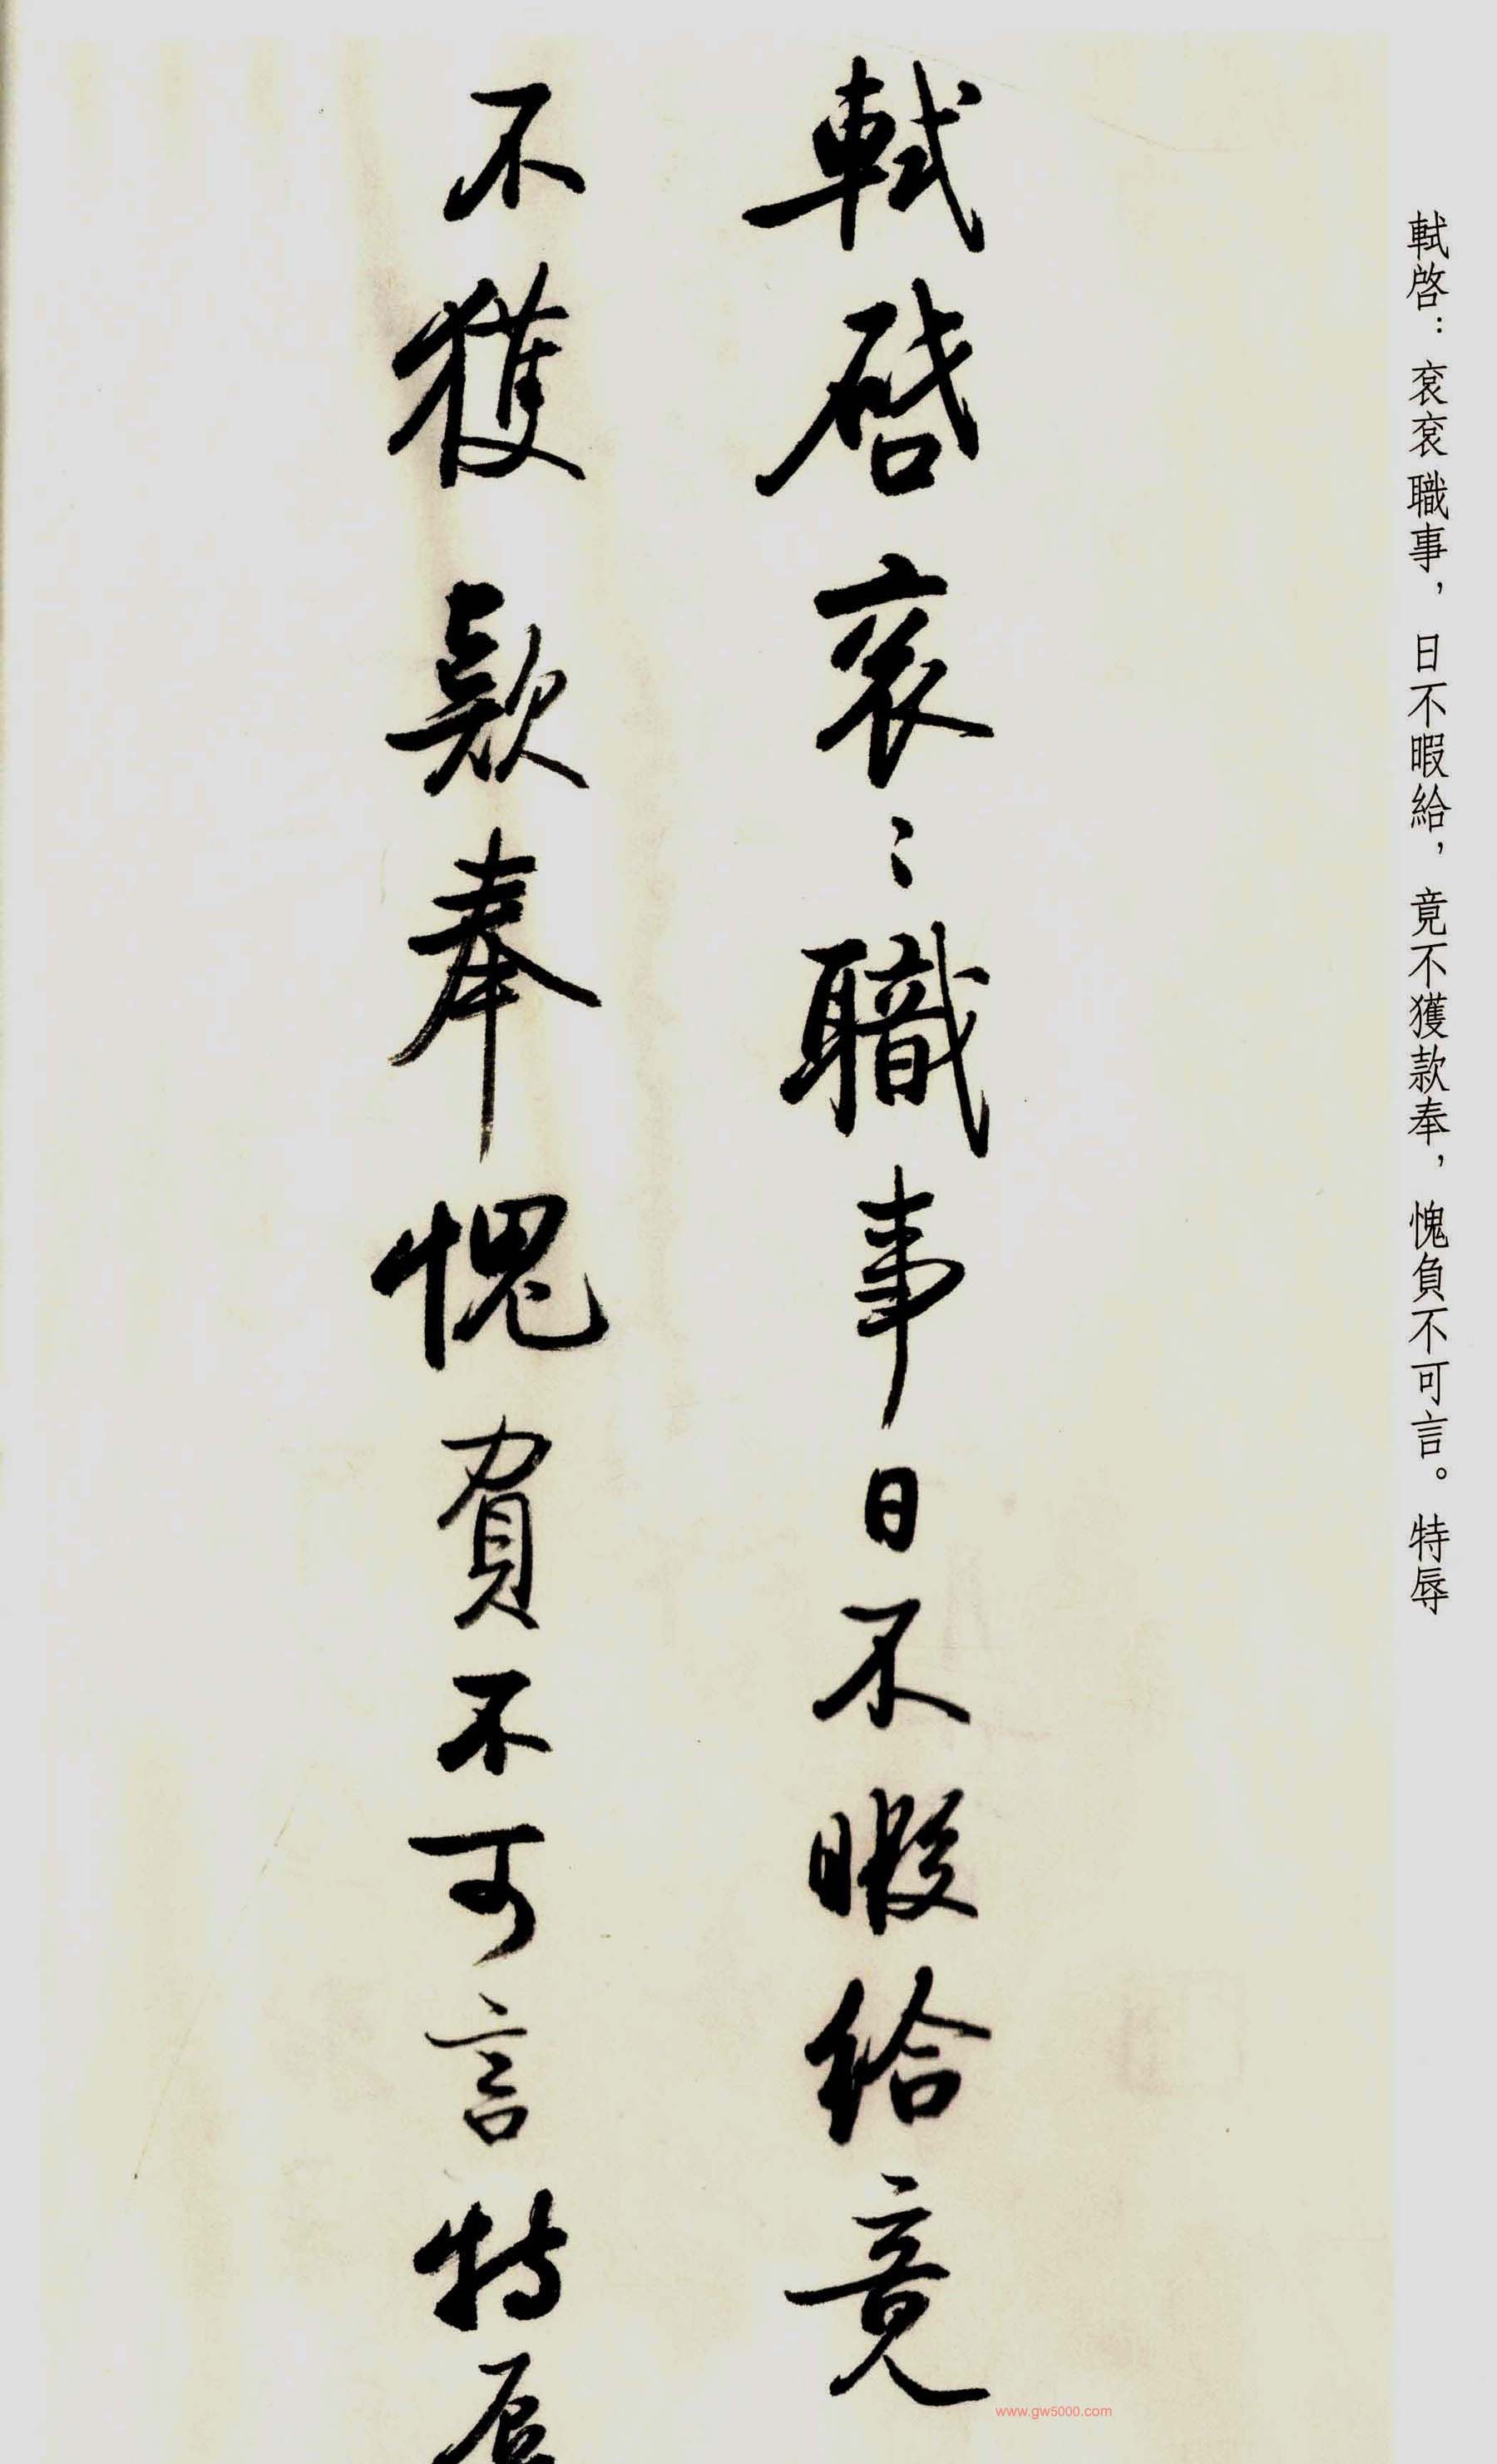 軾啓：衮衮職事，日不暇給，竟不獲款奉，愧負不可言。特辱
軾啓衮〻職事日不暇給竟
不獲款奉愧負不可言特辱
www.gw5000.com